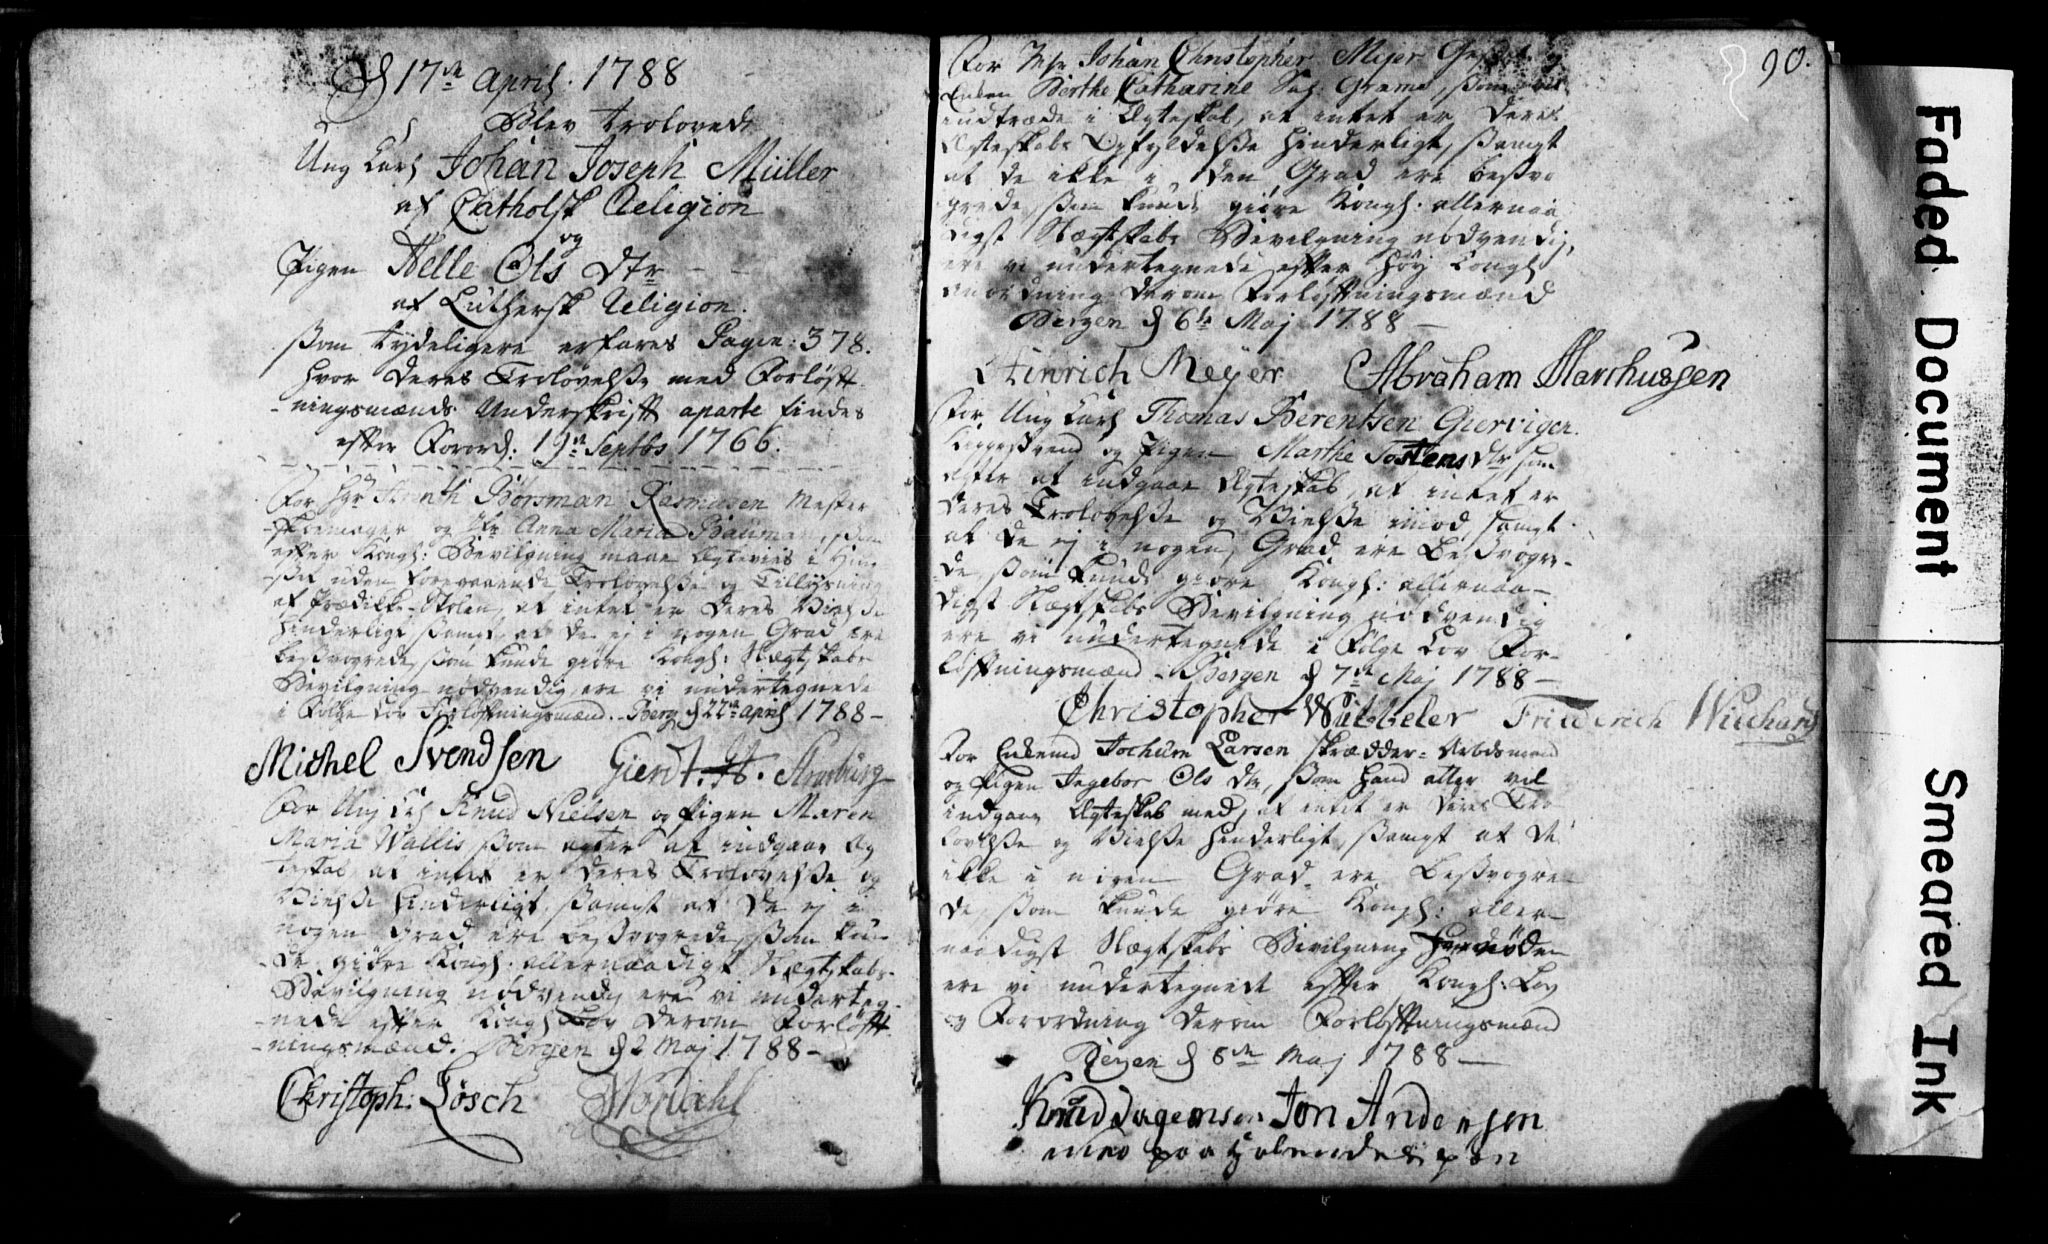 d 17de April. 1788
Blev trolovede
Ung Karl Johan Joseph Müller
af Catholsk Religion
og
Pigen Nelle Ols Dtr
af Luthersk Religion.
som tydeligere erfares Pagin: 378.
hvor deres Trolovelsse med Forløft-
ningsmænds Underskrifft aparte findes
efter Forord: 19de Septbs 1766.
For Hr Børsman Rasmussen Mester
og Jfr Anna Maria Bauman, som
efter Kongl: Bevilgning maae Ægtevies i Huu-
set uden foregaaende Trolovelsse og Tillysning
af Prædike-Stolen, at intet er deres Vielsse
hinderligt samt at de ej i nogen Grad ere
besvogrede, som kunde giøre Kongl: Slægtskabs
Bevilgning nødvendig, ere vi undertegnede
i Følge Lov Forløftningsmænd. Berg d 22de April 1788-
Michel Svendsen Giert
For Ung Karl Knud Nielsen og Pigen Maren
Maria Wallis som agter at indgaae Æg-
teskab, at intet er deres Trolovelsse og
Vielsse hinderligt, samt at de ej i
nogen Grad ere besvogrede, som kun-
de giøre Kongl: allernaadigst Slægtskabs-
Bevilgning nødvendig, ere vi underteg-
nede efter Kongl Lov derom Forløft-
ningsmænd. Bergen d 2 Maj 1788-
Christoph: Lösch
90.
For Johan Christopher Mejer
Enken Berthe Catharine Sal: Grame, som vil
indtræde i Ægteskab, at intet er deres
Ægteskabs Opfyldelsse hinderligt, samt
at de ikke i den Grad ere besvo-
grede, som kunde giøre Kongl: allernaa-
digst Slægtskabs Bevilgning nødvendig,
ere vi undertegnede efter Høj Kongl
Anordning derom Forløftningsmænd
Bergen d 6te Maj 1788-
Hinrich Meyer Abraham Marchussen
For Ung Karl Thomas Berentsen Gierviger.
og Pigen Marthe Tostens Dtr som
agter at indgaae Ægteskab, at intet er
deres Trolovelsse og Vielsse imod samt
at de ej i nogen Grad ere besvogre-
de, som kunde giøre Kongl: allernaa-
digst Slægtskabs Bevilgning nødvendig
ere vi undertegnede i Følge Lov For-
løftningsmænd. Bergen d 7de Maj 1788-
Christopher Wibbeler Friederich Wiechards
For Enkemd Jochum Larsen Skrædder-Arbdsmand
og Pigen Ingebor Ols Dtr, som hand atter vil
indgaae Ægteskab med, at intet er deres Tro-
lovelsse og Vielsse hinderligt, samt at de
ikke i nogen Grad ere besvogre-
de, som kunde giøre Kongl: aller-
naadigst Slægtskabs Bevilgning
ere vi undertegnede efter Kongl: Lov
og Forordning derom Forløftningsmænd
Bergen d 8de Maj 1788-
Knud Jon Andersen
med paa
Faded Document
Smeared Ink